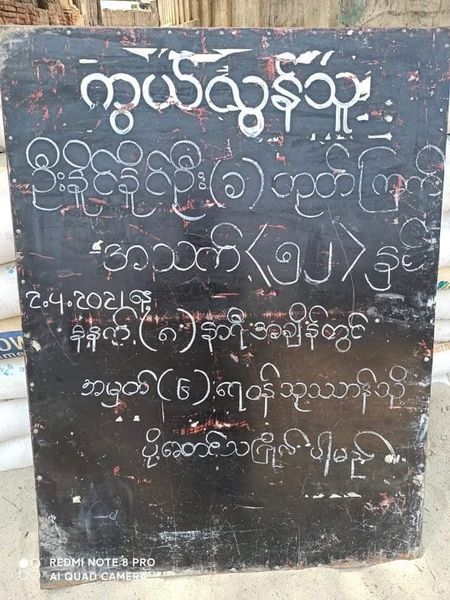 ကွယ်လွန်သူ
ဦးနိုင်နိုင်ဦး(ခ)ကုတ်ကြွက်
အသက်(၅၂)နှစ်
၃.၅.၂၀၂၁နေ့
နံနက်(၈)နာရီအချိန်တွင်
အမှတ်(၆)ရေဝန်သုဿာန်သို့
ပို့ဆောင်သင်္ဂြိုလ်ပါမည်
REDMI NOTE 8 PRO
AI QUAD CAMERA